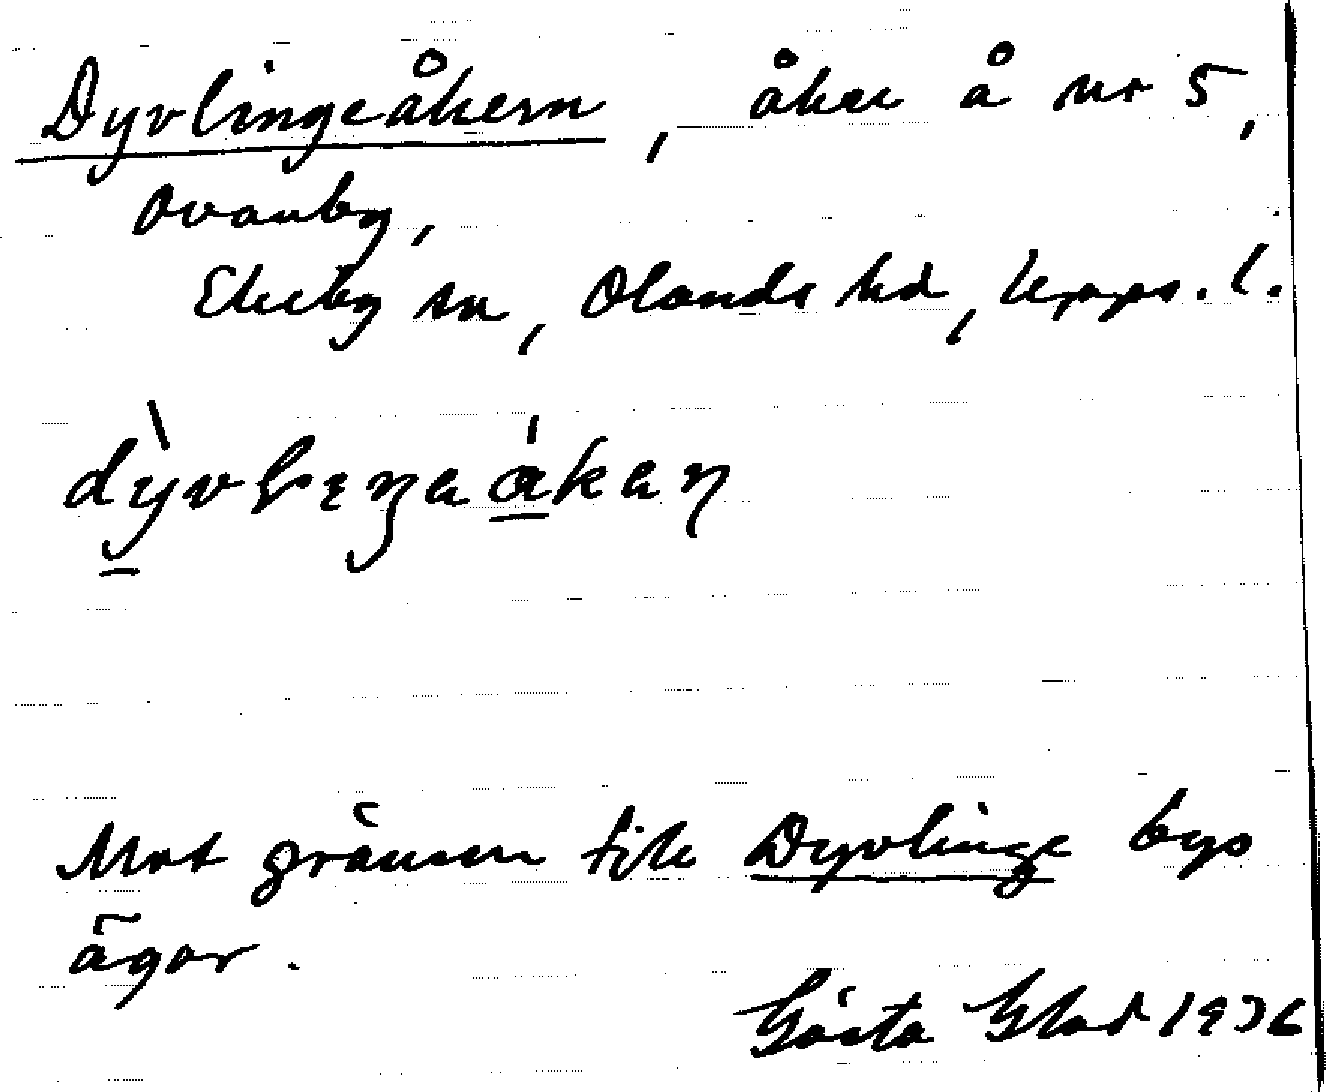 Dyvlingeåkern, åker å nr 5,
Ovanby,
Ekeby sn, Olands hd, Upps. l.
Mot gränsen till Dyvlinge bys
ägor.
Gösta Glad 1936